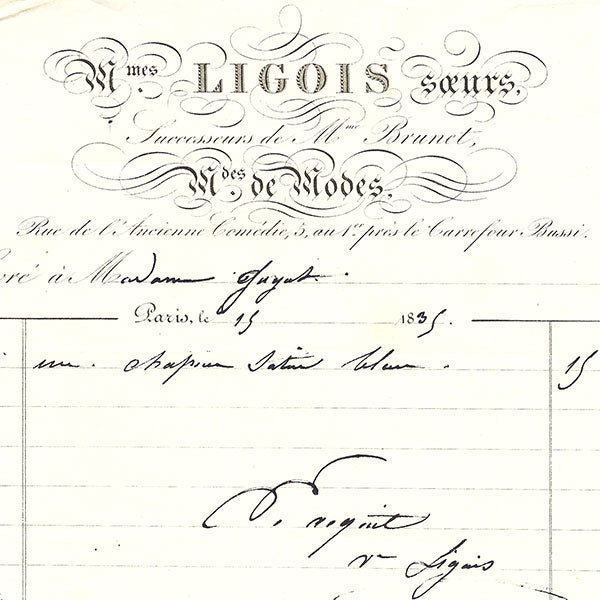 Mmes. LIGOIS sœurs,
Successeurs de Mme Brunet,
Mdes. de Modes,
Rue de l'Ancienne Comédie, 5, au 1er près le Carrefour Bussi.
vré à Madame
Paris, le 15 1835.
une chapeau Satin blanc. 15
Ligois